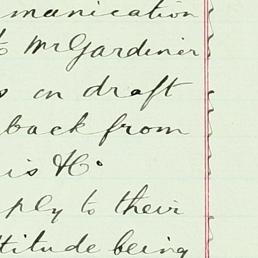 munication
Mr Gardiner
s on draft
back from
is Ho
ply to their
titude being